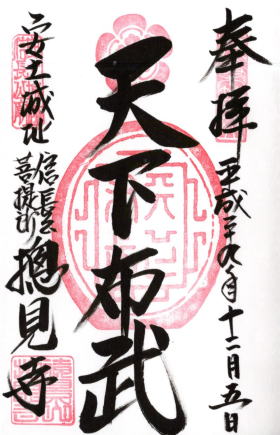 奉拝
平成二十九年十二月五日
天下布武
安土城址
信長公
菩提所
摠見寺